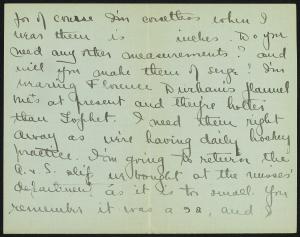 for of course I'm corsetless when I
wear them is    inches. Do you
need any other measurements? and
will you make them of serge? I'm
wearing Florence Durham's flannel
one's at present and they're hotter
than Tophet. I need them right
away as we're having daily hockey
practice. I'm going to return the
slip we bought at the misses'
department as it is too small. You
remember it was a 32, and I